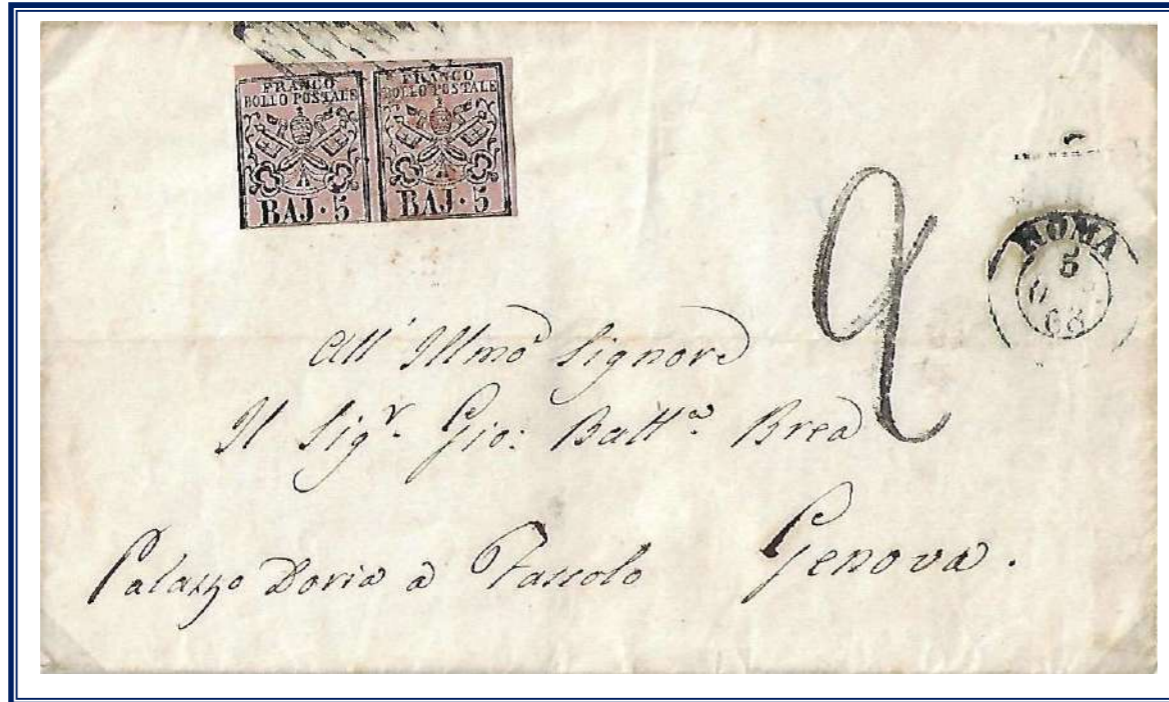 FRANCO
BOLLO POSTALE
BAJ·5
FRANCO
BOLLO POSTALE
BAJ·5
ROMA
5
68
2
All' Illmo Signore
Il Sigr. Gio: Batta. Brea
Palazzo Doria a Fassolo Genova.